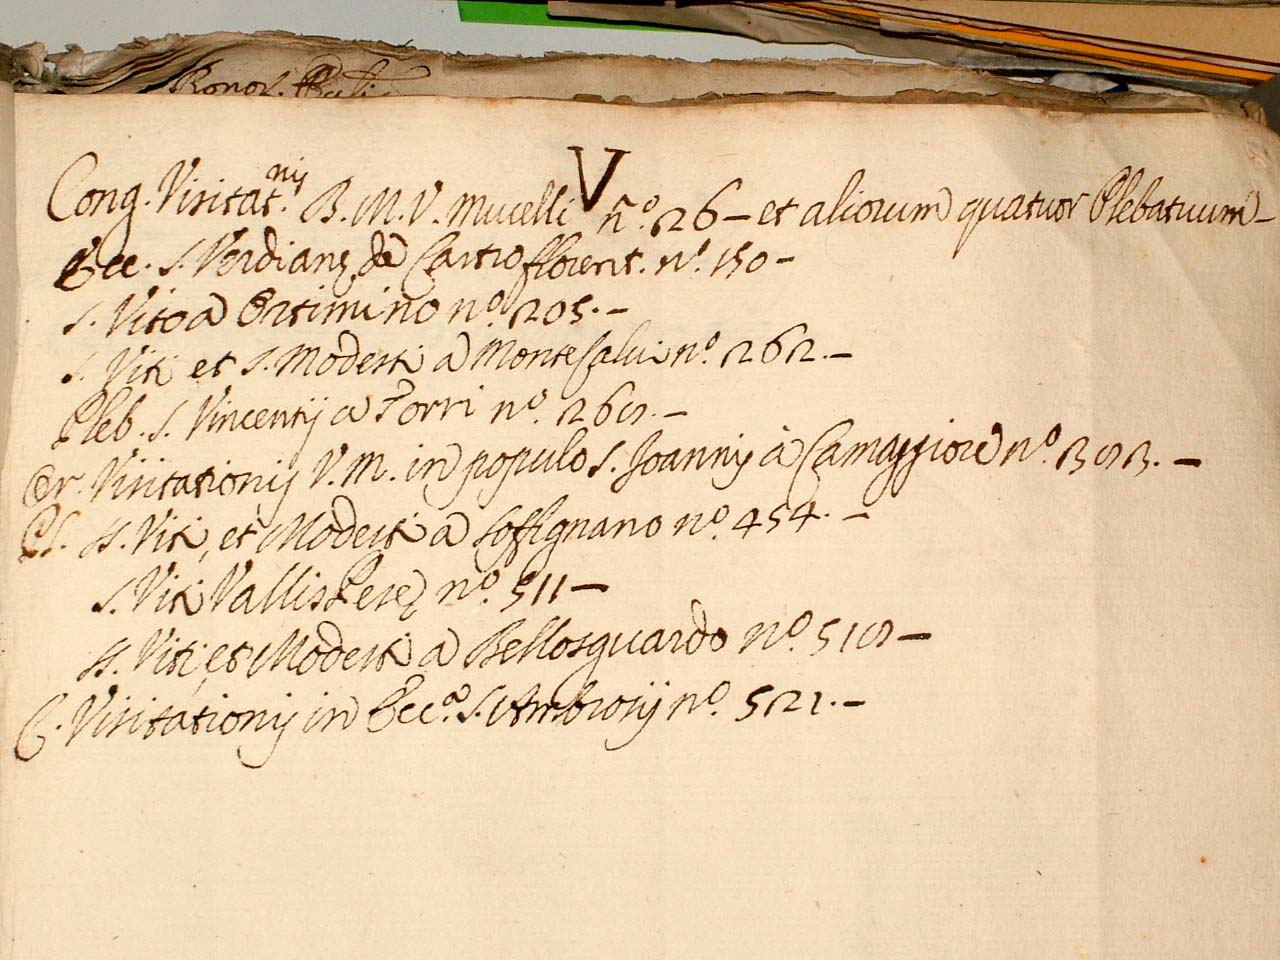 Honor. 
V
Cong. Visitat.nis B. M. V. Mucelli nº. 26 – et aliorum quatuor Plebatuum –
Ecc. S. Verdiane de Castro florent. nº. 150 –
S. Vito a Ortimino nº. 205. –
S. Viti et S. Modesti a Montesalvi nº. 262. –
Pleb. S. Vincentij a Torri nº. 269. –
Or. Visitationis V. M. in populo S. Joannis à Camaggiore nº. 393. –
SS. Viti, et Modesti a Loffignano nº. 454. –
S. Viti Vallis Pese nº. 511 –
SS. Viti, et Modesti a Bellosguardo nº. 519 –
C. Visitationis in Ecc.a S. Ambrosij nº. 521. –